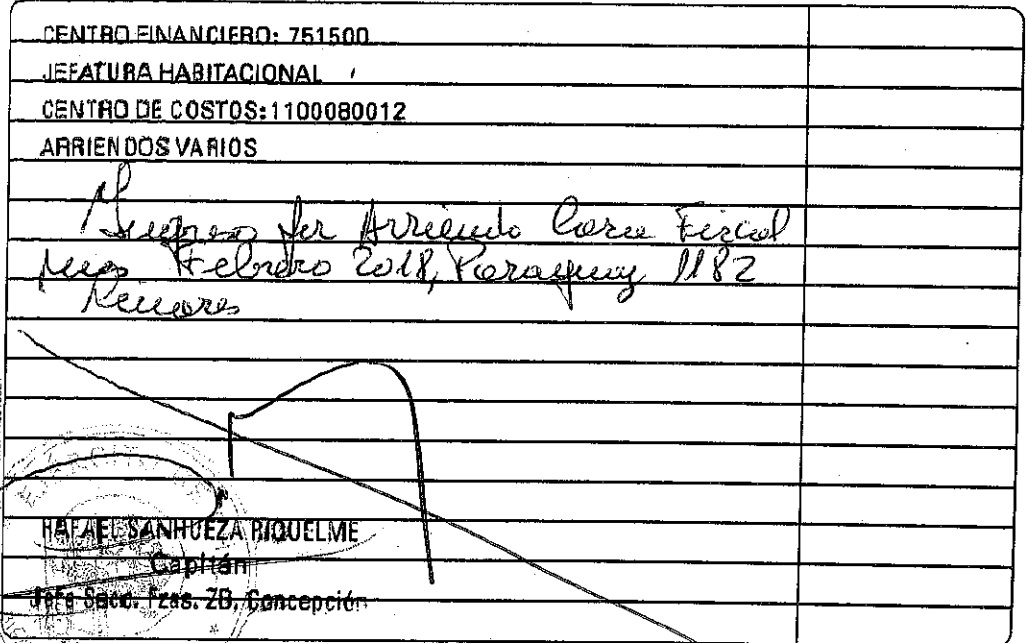 CENTRO FINANCIERO: 751500
JEFATURA HABITACIONAL
CENTRO DE COSTOS:1100080012
ARRIENDOS VARIOS
Ingreso por Arriendo Casa Fiscal
mes Febrero 2018, Paraguay 1182
Linares
RAFAEL SANHUEZA RIQUELME
Capitán
Jefe Secc. Fzas. ZB, Concepción